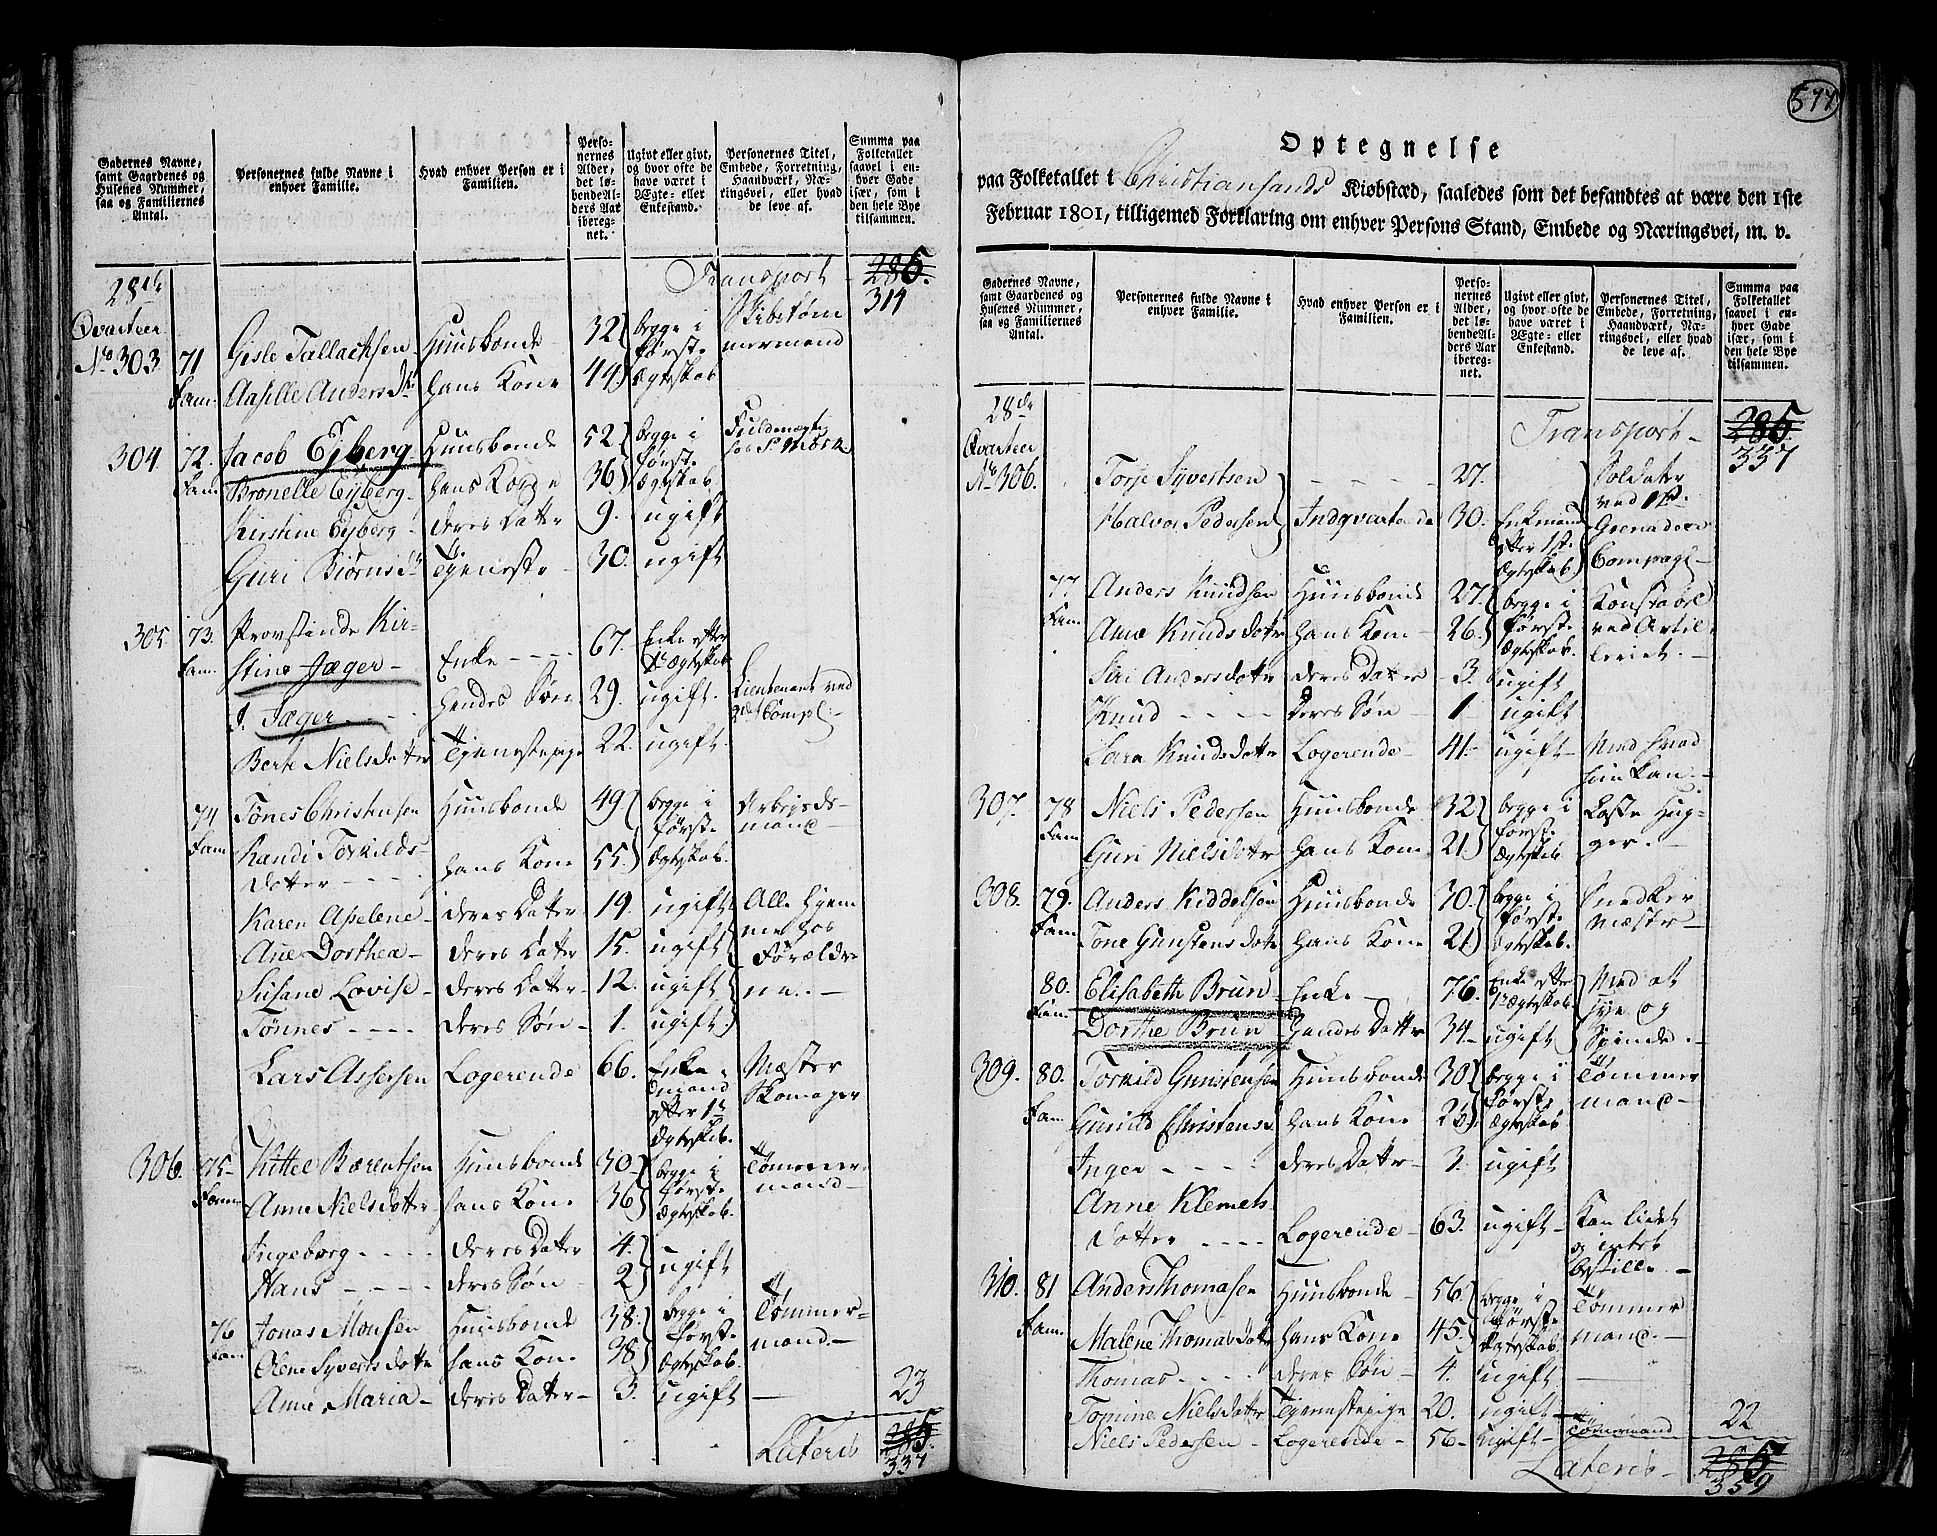 Gadernes Navne, samt Gaardenes og Husenes Nummer, saa og Familiernes Antal.
Personernes fulde Navne i enhver Familie.
Hvad enhver Person er i Familien.
Personernes Alder, det løbende Alders Aar iberegnet.
Ugivt eller givt, og hvor ofte de have været i Ægte- eller Enkestand.
Personernes Titel, Embede, Forretning, Haandværk, Næringsvei, eller hvad de leve af.
Summa paa Folketallet saavel i enhver Gade især, som i den hele Bye tilsammen.
28de Transport - 285.
314
Qvarteer
No 303 71 Fam. Gisle Tallachsen Huusbonde 32 begge i første Ægteskab Skibstømmermand
Aaselle Andersdr hans Kone 44
304. 72. Fam. Jacob Eyberg Huusbonde 52 begge i første Ægteskab Fuldmægtig hos P. Mørk
Bronelle Eyberg - hans Kone 36
Kirstine Eyberg - deres Datter 9. ugift
Guri Biørnsdr Tjeneste - 30. ugift
305 73. Fam. Provstinde Kir-
stine Jæger - Enke - - - - 67. Enke efter 1te Ægteskab
J. Jæger - - hendes Søn 29. ugift. Lieutenant ved 2det Compl: -
Berte Nielsdatter Tjenestepige 22. ugift.
74 Fam. Tønes Christensen Huusbonde 49 begge i første Ægteskab. Arbeydsmand -
Randi Torkilds-
datter - - - - hans Kone 55.
Karen Aselene - deres Datter - 19. ugift Alle hjemme hos Forældrene. -
Ane Dorthea - deres Datter 15. ugift
Susane Lovise - deres Datter - 12. ugift
Tønnes - - - - deres Søn - 1. ugift
Lars Assersen Logerende 66. Enkemand efter 1te Ægteskab. Mæster Skomager
306. 75 - Fam. Kittel Bærentsen Huusbonde 30 begge i første Ægteskab. Tømmermand -
Anne Nielsdatter hans Kone 36
Ingeborg - - - - deres Datter 4. ugift
Hans - - - - deres Søn - 2
76 Fam. Jonas Monsen Huusbonde 38. begge i første Ægteskab. Tømmermand. -
Olene Syvertsdatte hans Kone 38
Anne Maria - deres Datter - 3. ugift - 23
Lateris 285.
337
577
Optegnelse
paa Folketallet i Christiansands Kiøbstæd, saaledes som det befandtes at være den 1ste
Februar 1801, tilligemed Forklaring om enhver Persons Stand, Embede og Næringsvei, m. v.
Gadernes Navne, samt Gaardenes og Husenes Nummer, saa og Familiernes Antal.
Personernes fulde Navne i enhver Familie.
Hvad enhver Person er i Familien.
Personernes Alder, det løbende Alders Aar iberegnet.
Ugivt eller givt, og hvor ofte de have været i Ægte- eller Enkestand.
Personernes Titel, Embede, Forretning, Haandværk, Næringsvei, eller hvad de leve af.
Summa paa Folketallet saavel i enhver Gade især, som i den hele Bye tilsammen.
28de Transport - 285.
337
Qvarteer
No 306. Torje Syvertsen - - - - 27. Soldater ved 1ste Grenadeer Compagi -
Halvor Pedersen Indqvarterede 30. Enkemand efter 1ste Ægteskab
77 Fam. Anders Knudsen Huusbonde 27. begge i første Ægteskab. Konstabel ved Artilleriet. -
Ane Knudsdatr hans Kone - 26.
Siri Andersdatr deres Datter - 3. ugift
Knud - - - - Deres Søn - 1 ugift
Sara Knudsdattr Logerende - 41 - ugift - Med hvad hun kan. -
307. 78 Fam Niels Pedersen Huusbonde 32 begge i første Ægteskab Laste Hugger. -
Guri Nielsdattr hans Kone 21.
308. 79. Fam. Anders Kiddelsen Huusbonde 30. begge i første Ægteskab. Snedker Mæster -
Tone Gunstensdatr hans Kone 21
80. Fam. Elisabeth Brun - Enke - 76. Enke efter 1te Ægteskab Med at sye og Spinde. -
Dorthe Brun hendes Datter 34 - ugift
309. 80. Fam. Torkild Gunstensen Huusbonde 30 begge i første Ægteskab Tømmermand -
Gunild Christensd hans Kone 26
Inger - - - - deres Datter - 3. ugift
Anne Klemets
datter - - - - Logerende - 63. ugift - Kan lidet og intet bestille. -
310. 81 Fam. Anders Thomasen Huusbonde - 56. begge i første Ægteskab Tømmermand. -
Malene Thomasdatr hans Kone 45.
Thomas - - - - deres Søn - 4. ugift -
Tomine Nielsdatter Tjenestepige 20. ugift -
Niels Pedersen - Logerende - 56 - ugift - Tømermand 22
Lateris - 285
359